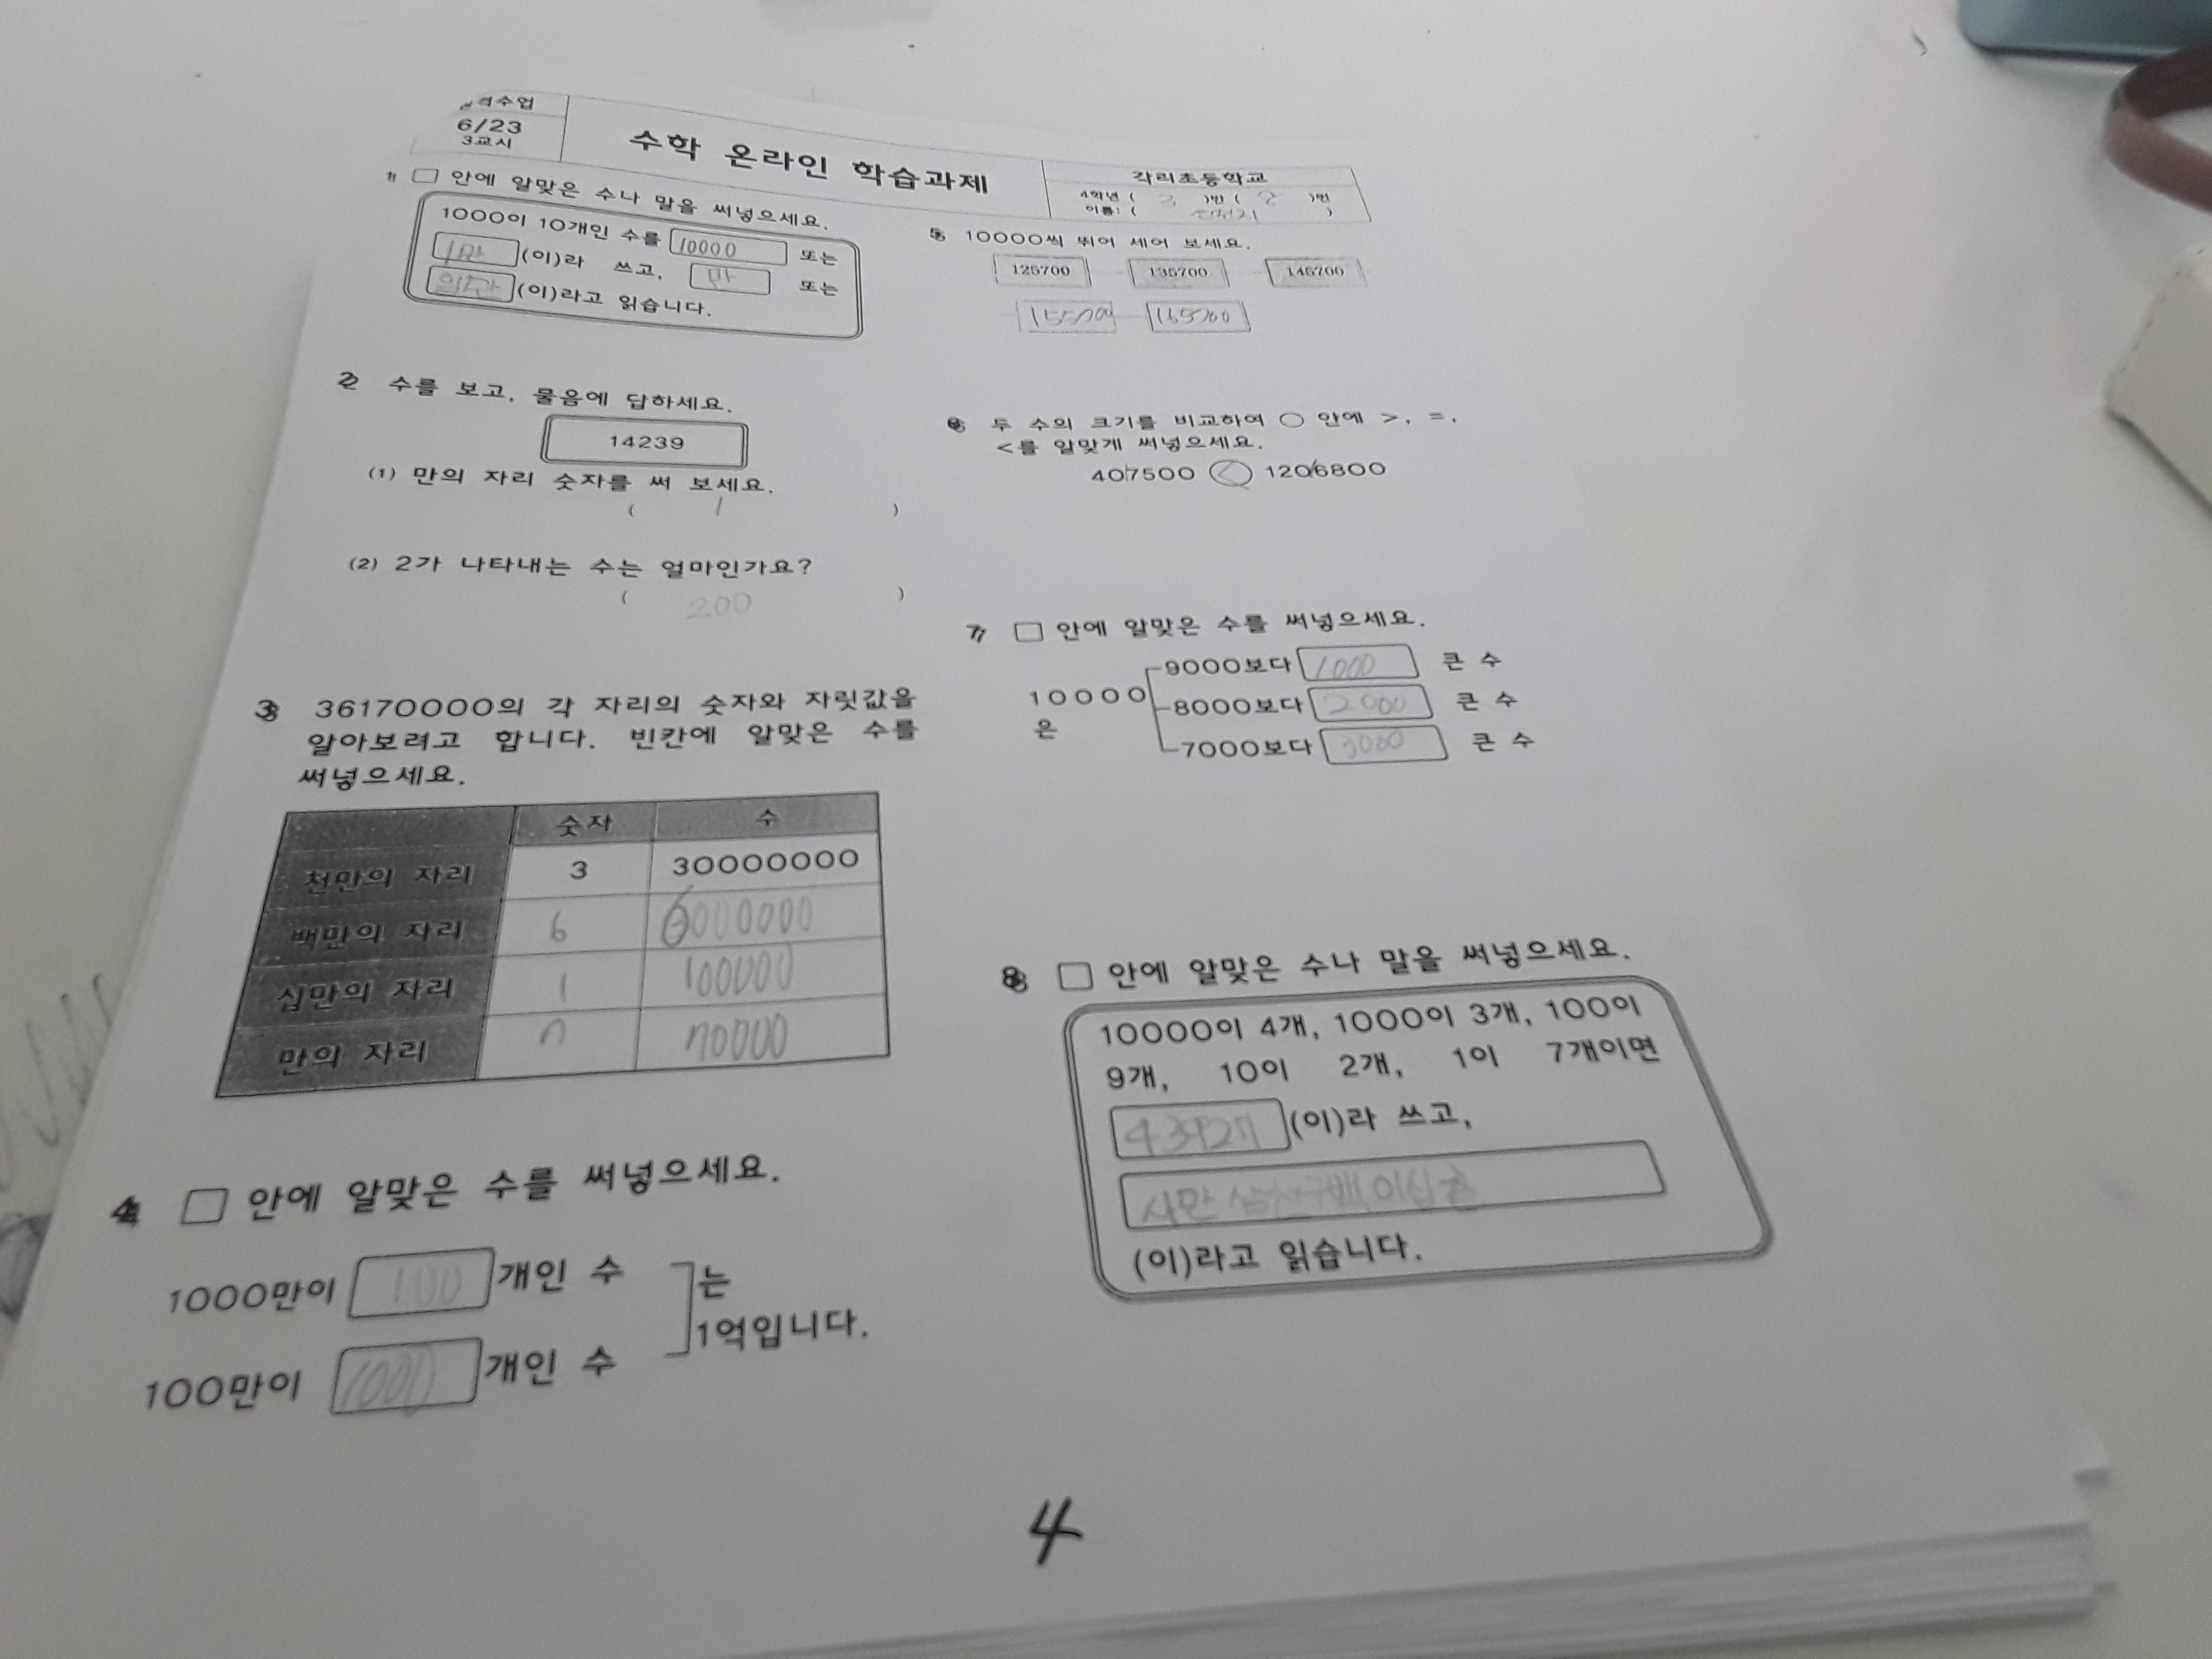 격수업
6/23
3교시
수학 온라인 학습과제
각리초등학교
4학년 ( 3 )반 ( 8 )번
이름: ( )
1 □ 안에 알맞은 수나 말을 써넣으세요.
1000이 10개인 수를 10000 또는
1만 (이)라 쓰고, 만 또는
일만 (이)라고 읽습니다.
2 수를 보고, 물음에 답하세요.
14239
(1) 만의 자리 숫자를 써 보세요.
( 1 )
(2) 2가 나타내는 수는 얼마인가요?
( 200 )
3 36170000의 각 자리의 숫자와 자릿값을
알아보려고 합니다. 빈칸에 알맞은 수를
써넣으세요.
숫자 수
천만의 자리 3 30000000
백만의 자리 6 6000000
십만의 자리 1 100000
만의 자리 7 70000
4 □ 안에 알맞은 수를 써넣으세요.
1000만이 100 개인 수
100만이 1000 개인 수
는
1억입니다.
5 10000씩 뛰어 세어 보세요.
125700 135700 145700
155700 165700
6 두 수의 크기를 비교하여 ○ 안에 >, =,
<를 알맞게 써넣으세요.
407500 < 1206800
7 □ 안에 알맞은 수를 써넣으세요.
10000
은
9000보다 1000 큰 수
8000보다 2000 큰 수
7000보다 3000 큰 수
8 □ 안에 알맞은 수나 말을 써넣으세요.
10000이 4개, 1000이 3개, 100이
9개, 10이 2개, 1이 7개이면
43927 (이)라 쓰고,
사만 삼천구백이십칠
(이)라고 읽습니다.
4